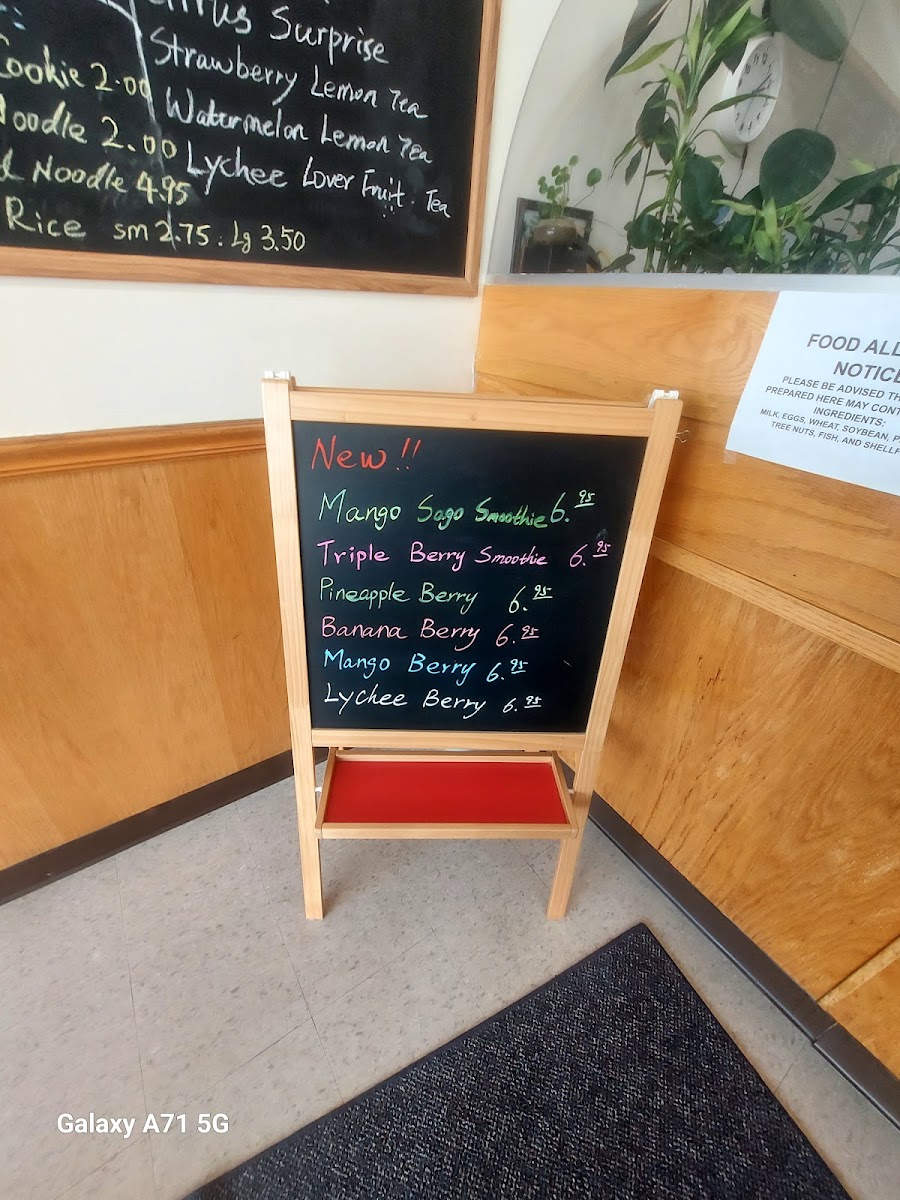 Surprise
Strawberry Lemon Tea
Watermelon Lemon Tea
Lychee Lover Fruit Tea
Cookie 2.00
Noodle 2.00
Noodle 4.95
Rice sm 2.75. Lg 3.50
New!!
Mango Sago Smoothie 6.95
Triple Berry Smoothie 6.95
Pineapple Berry 6.95
Banana Berry 6.95
Mango Berry 6.95
Lychee Berry 6.95
FOOD ALL
NOTICE
PLEASE BE ADVISED TH
PREPARED HERE MAY CONT
INGREDIENTS:
MILK, EGGS, WHEAT, SOYBEAN, P
TREE NUTS, FISH, AND SHELLF
Galaxy A71 5G